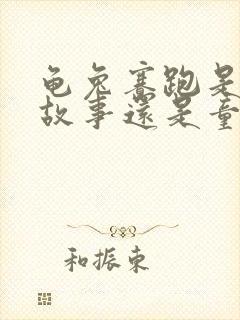 龟兔赛跑是
故事还是童
和振东